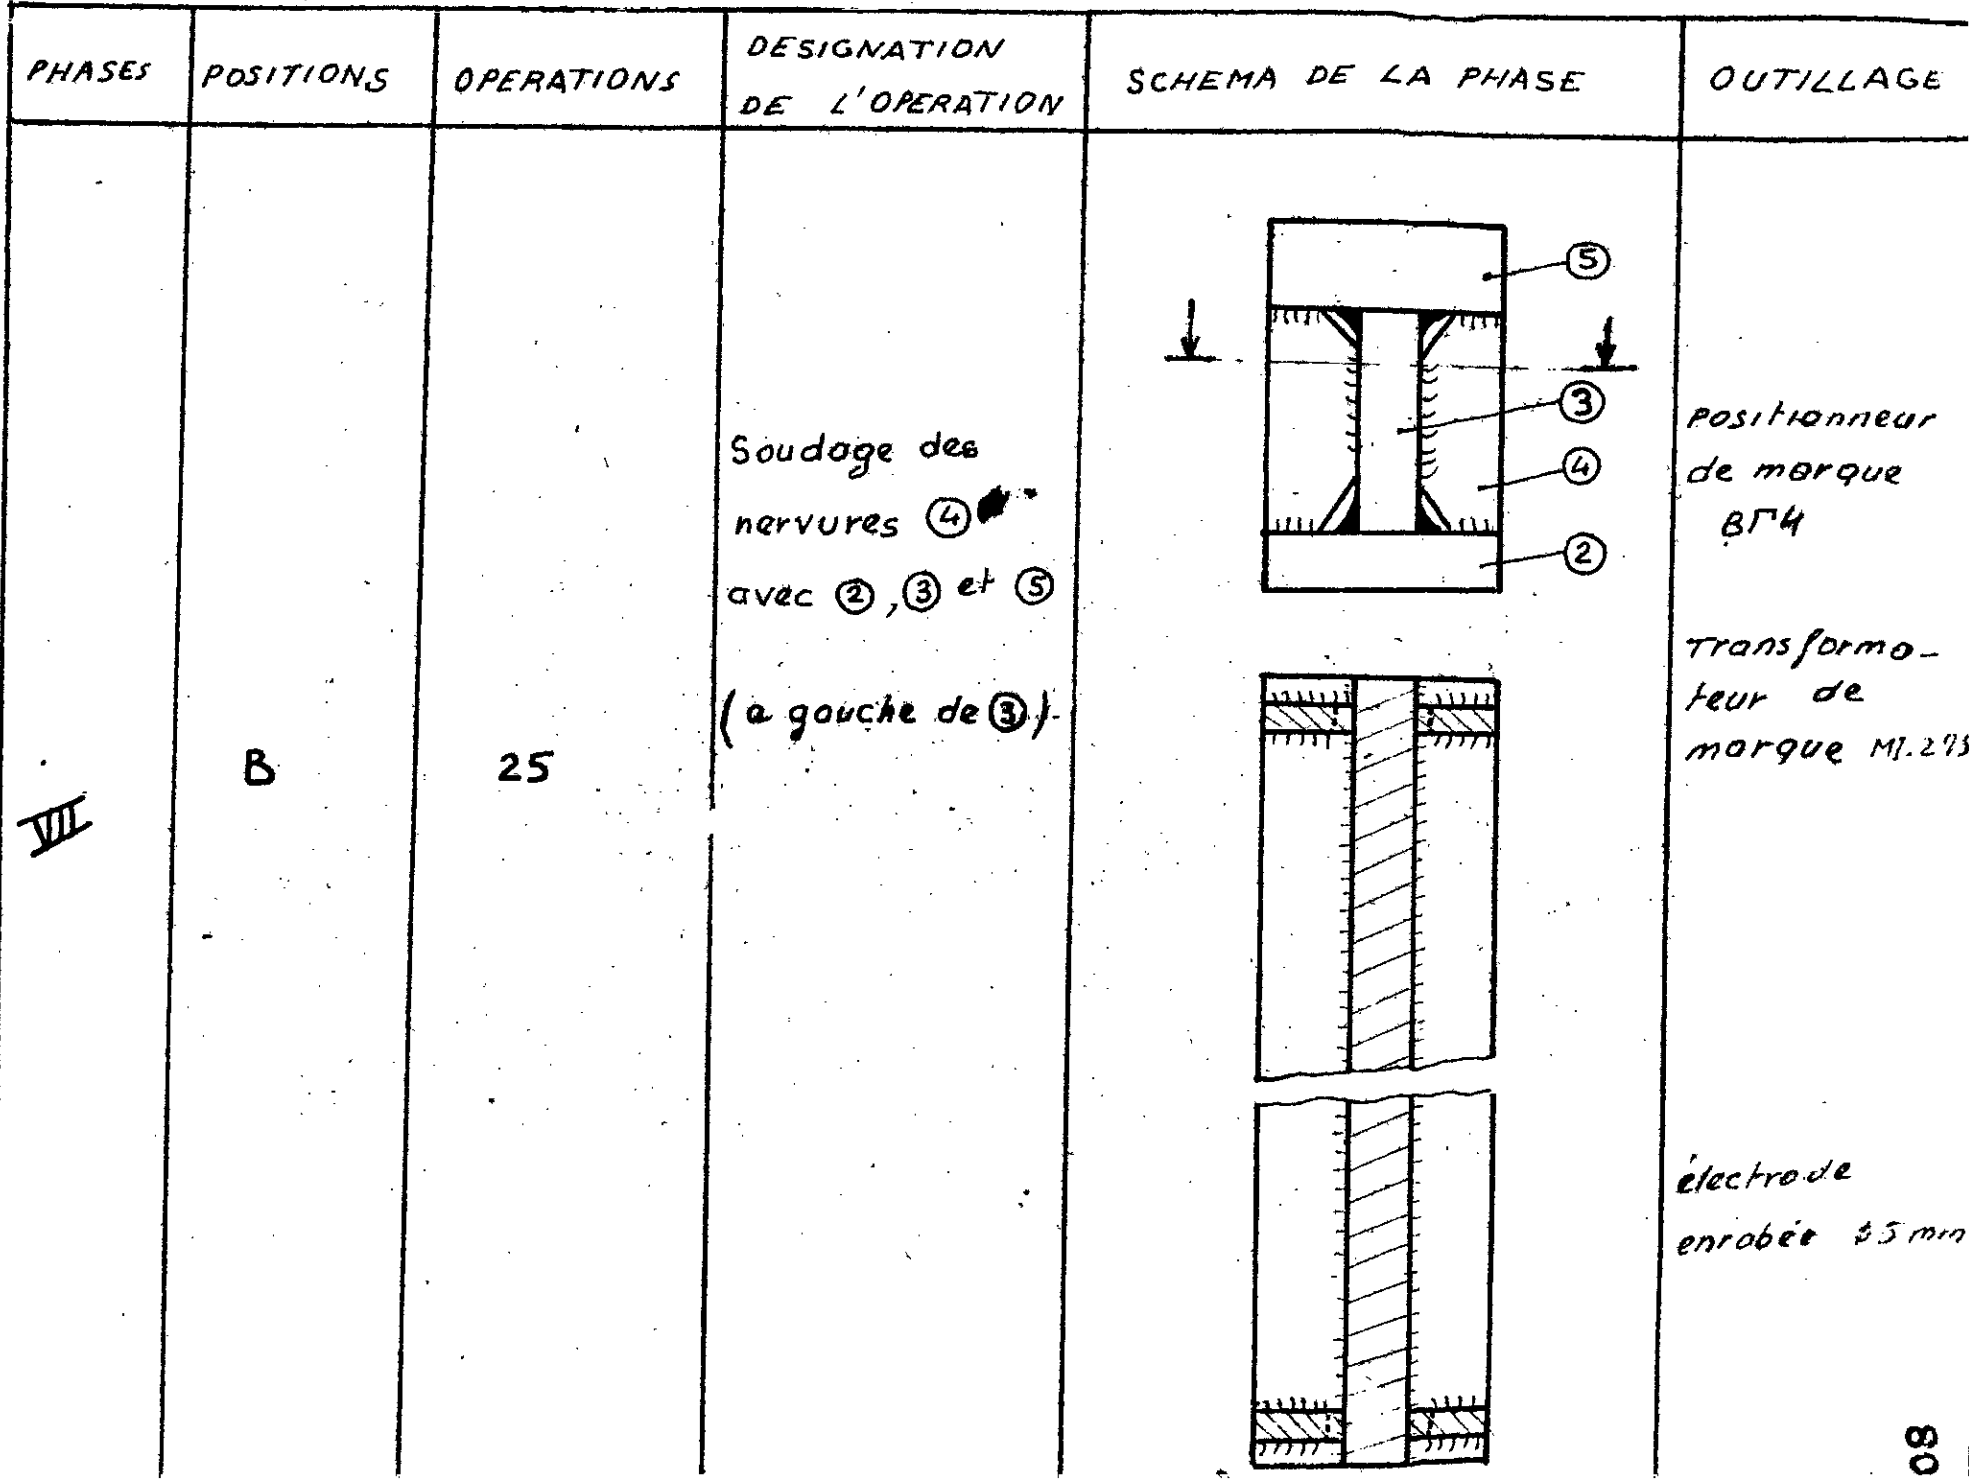 PHASES
POSITIONS
OPERATIONS
DESIGNATION
DE L'OPERATION
SCHEMA DE LA PHASE
OUTILLAGE
VII
B
25
Soudage des
nervures ④
avec ②, ③ et ⑤
(a gauche de ③)
⑤
③
④
②
positionneur
de marque
Transforma-
teur de
marque
électrode
enrobée 5 mm
80